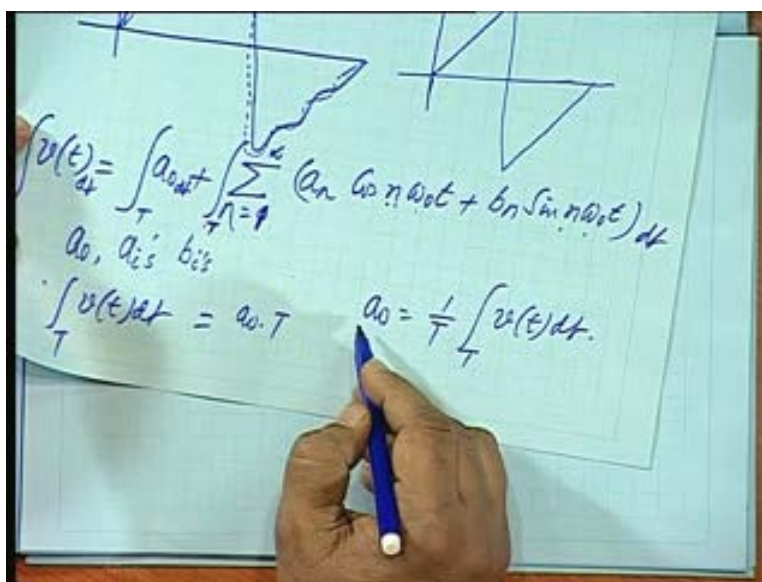 ∫v(t)dt = ∫_T a₀dt + ∫_T ∑_{n=1}^{α} (aₙ Cos nω₀t + bₙ Sin nω₀t) dt
a₀, aᵢ's bᵢ's
∫_T v(t)dt = a₀.T a₀ = 1/T ∫_T v(t)dt.